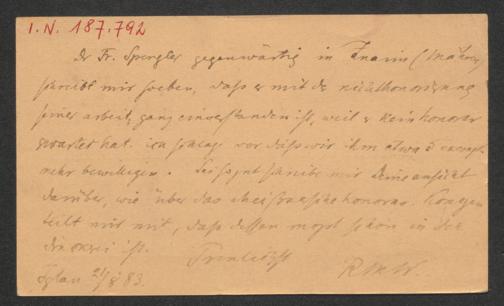 I. N. 187.792
Dr Fr. Spengler gegenwärtig in Znaim (Mähren)
schreibt mir soeben, dass er mit der nichthonorierung
seiner arbeit ganz einverstanden ist, weil er kein honorar
erwartet hat. ich schlage vor dass wir ihm etwa 5 exempl.
mehr bewilligen. schreibe mir deine ansicht
darüber, wie über das honorar.
teilt mir mit, dass dessen schon in der
ist.
Iglau 83. R M W.